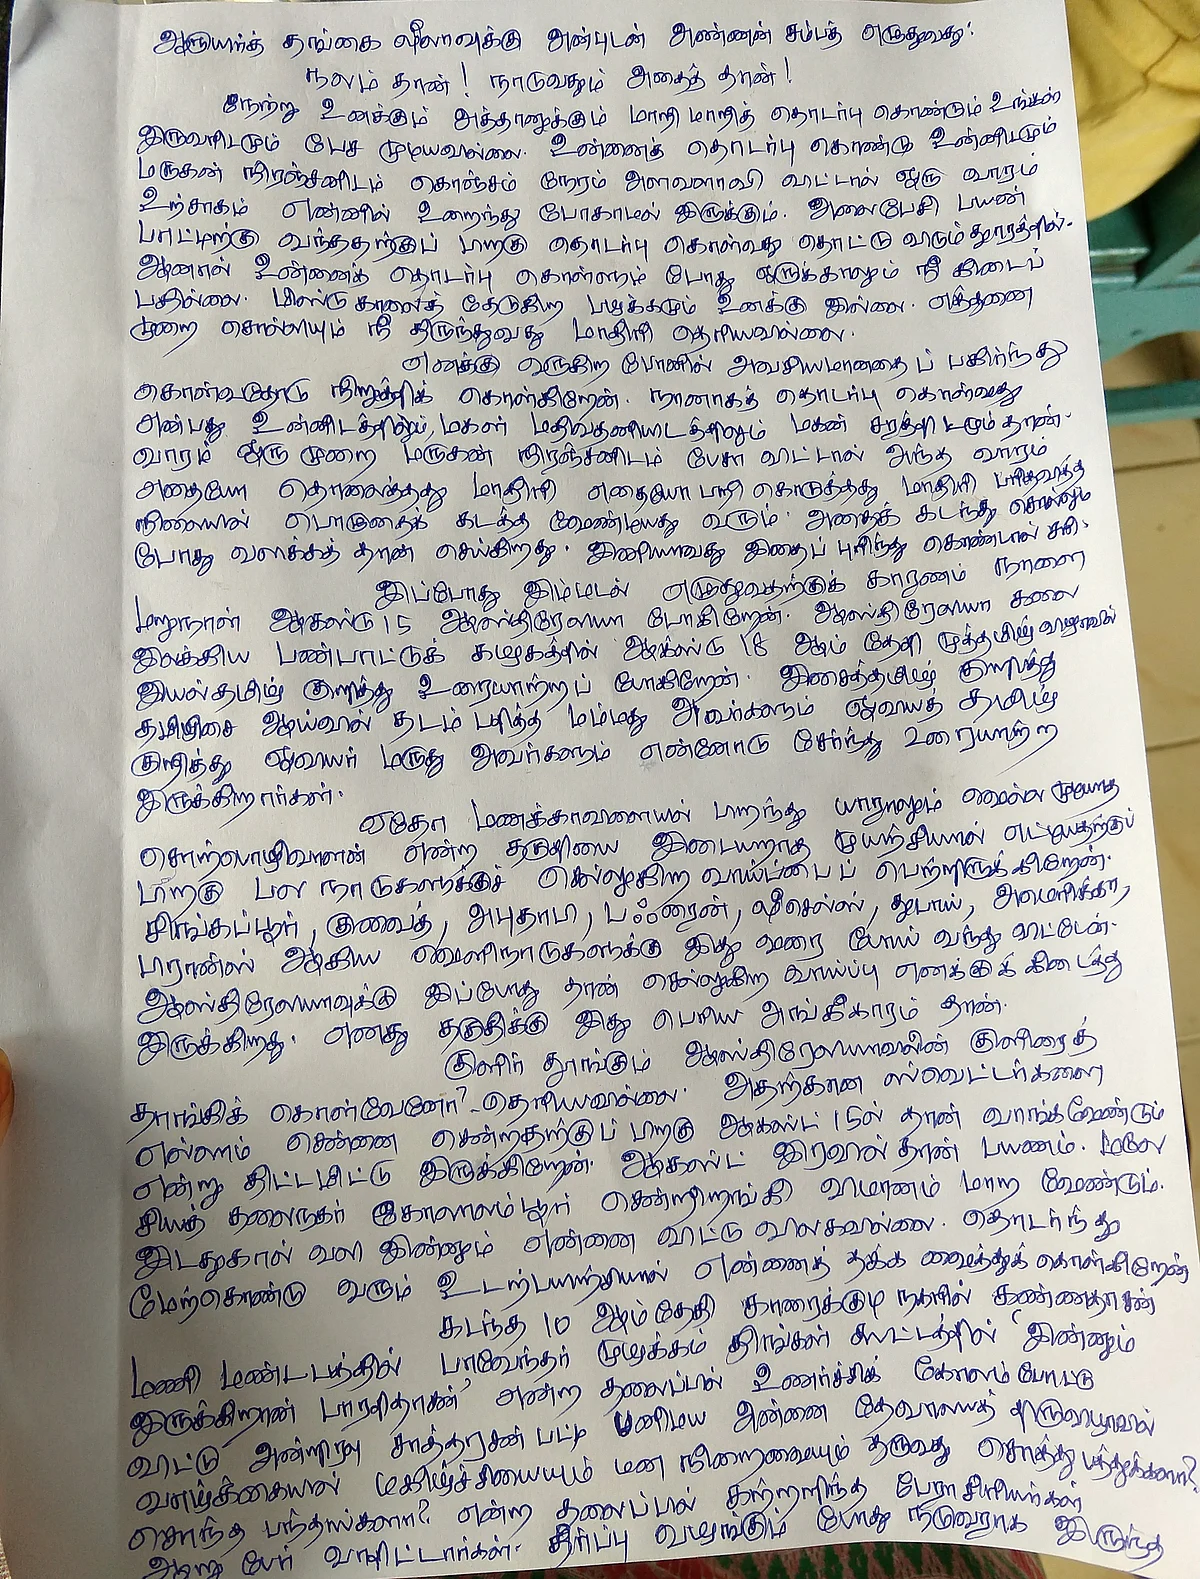 ஆருயிர்த் தங்கை ஷீலாவுக்கு அன்புடன் அண்ணன் சம்பத் எழுதுவது:
நலம் தான்! நாடுவதும் அதைத் தான்!
நேற்று உனக்கும் அத்தானுக்கும் மாறி மாறித் தொடர்பு கொண்டும் உங்கள்
இருவரிடமும் பேச முடியவில்லை. உன்னைத் தொடர்பு கொண்டு உன்னிடமும்
மருகன் நிரஞ்சனிடம் கொஞ்சம் நேரம் அளவளாவி விட்டால் ஒரு வாரம்
உற்சாகம் என்னில் உறைந்து போகாமல் இருக்கும். அலைபேசி பயன்
பாட்டிற்கு வந்ததற்குப் பிறகு தொடர்பு கொள்வது தொட்டு விடும் தூரத்தில்.
ஆனால் உன்னைத் தொடர்பு கொள்ளும் போது ஒருக்காலும் நீ கிடைப்
பதில்லை. மிஸ்டு காலைத் தேடுகிற பழக்கமும் உனக்கு இல்லை. எத்தனை
முறை சொல்லியும் நீ திருந்துவது மாதிரி தெரியவில்லை.
எனக்கு வருகிற போனில் அவசியமானதைப் பகிர்ந்து
கொள்வதோடு நிறுத்திக் கொள்கிறேன். நானாகத் தொடர்பு கொள்வது
அன்பது உன்னிடத்திலும், மகள் மதிவதனியிடத்திலும் மகன் சரத்திடமும் தான்.
வாரம் ஒரு முறை மருகன் நிரஞ்சனிடம் பேசா விட்டால் அந்த வாரம்
எதையோ தொலைத்தது மாதிரி எதையோ பறி கொடுத்தது மாதிரி பரிதவித்த
நிலையில் பொழுதைக் கடத்த வேண்டியது வரும். அதைக் கடந்து செல்லும்
போது வலிக்கத் தான் செய்கிறது. இனியாவது இதைப் புரிந்து கொண்டால் சரி.
இப்போது இம்மடல் எழுதுவதற்குக் காரணம் நாளை
மறுநாள் ஆகஸ்டு 15 ஆஸ்திரேலியா போகிறேன். ஆஸ்திரேலியா கலை
இலக்கிய பண்பாட்டுக் கழகத்தில் ஆகஸ்டு 18 ஆம் தேதி முத்தமிழ் விழாவில்
இயல்தமிழ் குறித்து உரையாற்றப் போகிறேன். இசைத்தமிழ் குறித்து
தமிழிசை ஆய்வில் தடம் பதித்த மம்மது அவர்களும் ஓவியத் தமிழ்
குறித்து ஓவியர் மருது அவர்களும் என்னோடு சேர்ந்து உரையாற்ற
இருக்கிறார்கள்.
ஏதோ மணக்காவிளையில் பிறந்து யாராலும் வெல்ல முடியாத
சொற்பொழிவாளன் என்ற தகுதியை இடையறாத முயற்சியால் எட்டியதற்குப்
பிறகு பல நாடுகளுக்குச் செல்லுகிற வாய்ப்பைப் பெற்றிருக்கிறேன்.
சிங்கப்பூர், குவைத், அபுதாபி, பஃரைன், ஷீசெல்ஸ், துபாய், அமெரிக்கா,
பிரான்ஸ் ஆகிய வெளிநாடுகளுக்கு இது வரை போய் வந்து விட்டேன்.
ஆஸ்திரேலியாவுக்கு இப்போது தான் செல்லுகிற வாய்ப்பு எனக்குக் கிடைத்து
இருக்கிறது. எனது தகுதிக்கு இது பெரிய அங்கீகாரம் தான்.
குளிர் தூங்கும் ஆஸ்திரேலியாவின் குளிரைத்
தாங்கிக் கொள்வேனோ? தெரியவில்லை. அதற்கான ஸ்வெட்டர்களை
எல்லாம் சென்னை சென்றதற்குப் பிறகு ஆகஸ்ட் 15ல் தான் வாங்கவேண்டும்
என்று திட்டமிட்டு இருக்கிறேன். ஆகஸ்ட் இரவில்தான் பயணம். மலே
சியத் தலைநகர் கோலாலம்பூர் சென்றிறங்கி விமானம் மாற வேண்டும்.
இடதுகால் வலி இன்னும் என்னை விட்டு விலகவில்லை. தொடர்ந்து
மேற்கொண்டு வரும் உடற்பயிற்சியால் என்னைத் தக்க வைத்துக் கொள்கிறேன்
கடந்த 10 ஆம்தேதி காரைக்குடி நகரில் கண்ணதாசன்
மணி மண்டபத்தில் பாவேந்தர் முழக்கம் திங்கள் கூட்டத்தில் 'இன்னும்
இருக்கிறான் பாரதிதாசன்' என்ற தலைப்பில் உணர்ச்சிக் கோலம் போட்டு
விட்டு அன்றிரவு சாத்தரசன் பட்டி புனிமய அன்னை தேவாலயத் திருவிழாவில்
வாழ்க்கையில் மகிழ்ச்சியையும் மன நிறைவையும் தருவது சொத்து பத்துக்களா?
சொந்த பந்தங்களா? என்ற தலைப்பில் கற்றறிந்த பேராசிரியர்கள்
ஆறு பேர் வாதிட்டார்கள். தீர்ப்பு வழங்கும் போது நடுவராக இருந்த